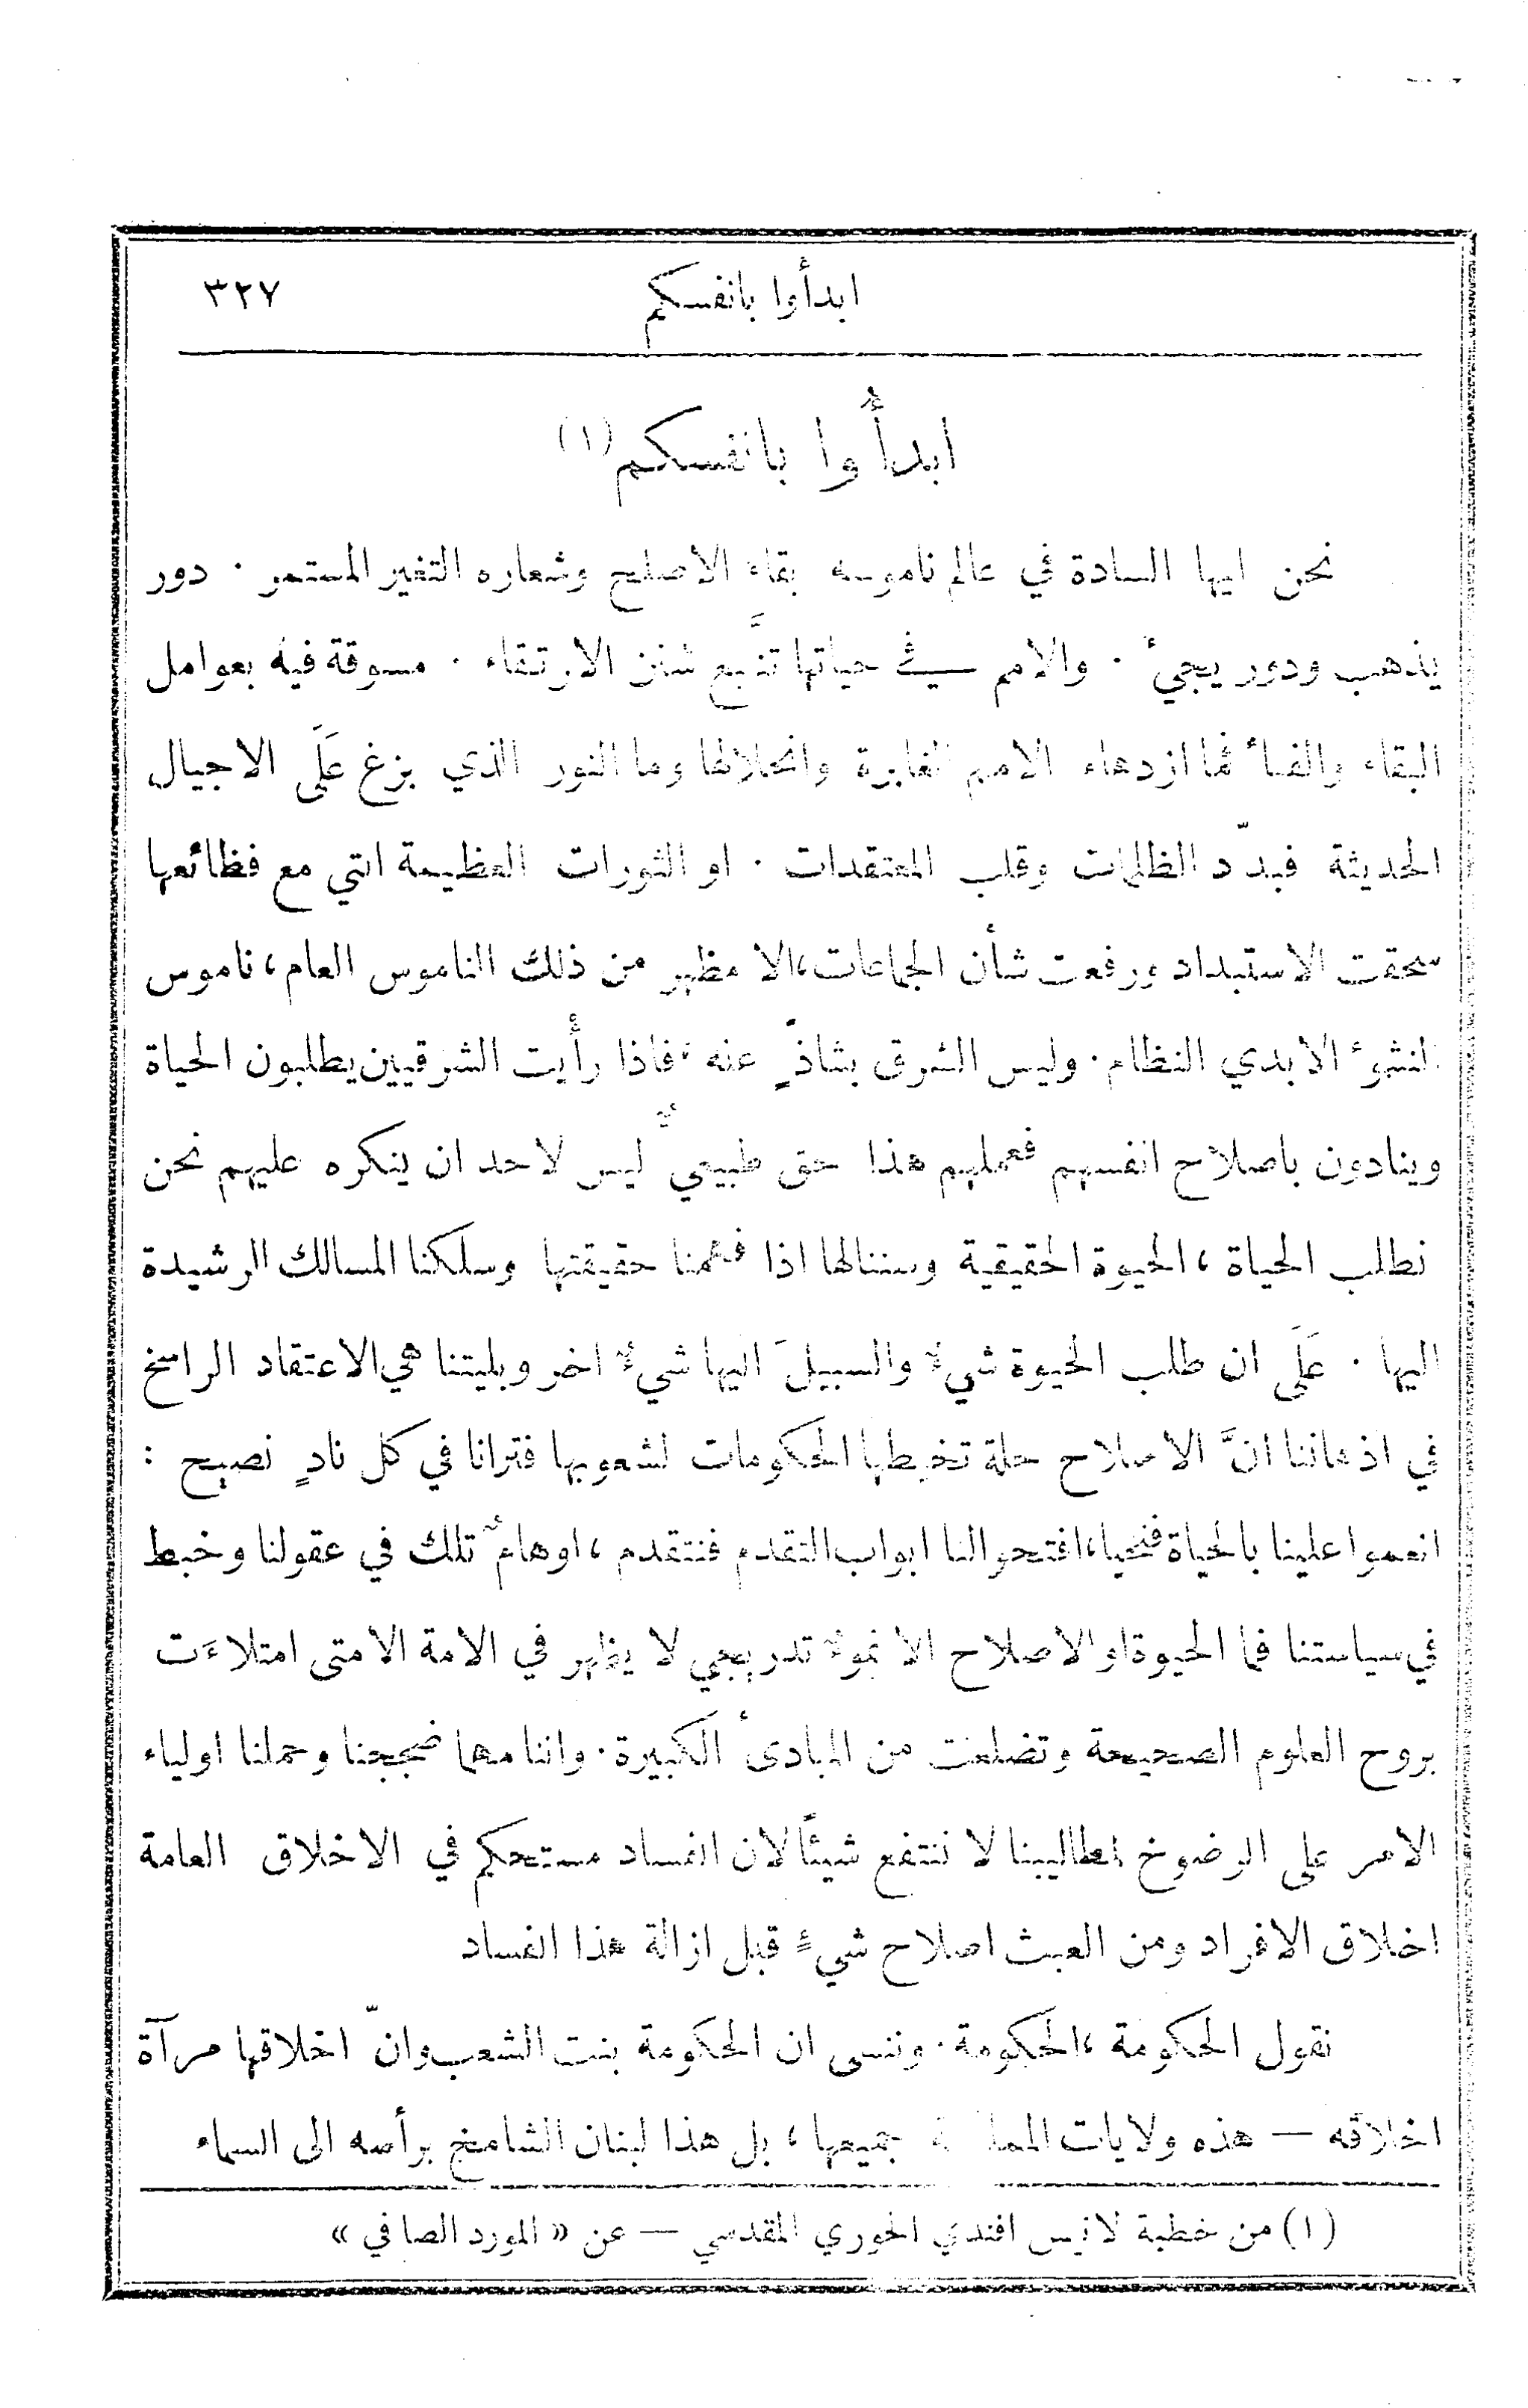 ابدأوا بانفسكم ٣٢٧
ابدأوا بانفسكم (١)
نحن ايها السادة في عالم ناموسه بقاء الاصلح وشعاره التغير المستمر . دور
يذهب ودور يجيءُ . والامم في حياتها تتَّبع سنن الارتقاء . مسوقة فيه بعوامل
البقاء والفناء فما ازدهاء الامم الغابرة وانحلالها وما النور الذي بزغ عَلَى الاجيال
الحديثة فبدّد الظلمات وقلب المعتقدات . او الثورات العظيمة التي مع فظائعها
سحقت الاستبداد ورفعت شأن الجماعات، الا مظهر من ذلك الناموس العام، ناموس
النشوء الابدي النظام . وليس الشرق بشاذٍّ عنه، فاذا رأيت الشرقيين يطلبون الحياة
وينادون باصلاح انفسهم فعملهم هذا حق طبيعيٌّ ليس لاحد ان ينكره عليهم نحن
نطلب الحياة، الحيوة الحقيقية وسننالها اذا فهمنا حقيقتها وسلكنا المسالك الرشيدة
اليها . عَلَى ان طلب الحيوة شيءٌ والسبيلَ اليها شيءٌ اخر وبليتنا هي الاعتقاد الراسخ
في اذهاننا انَّ الاصلاح حلة تخيطها الحكومات لشعوبها فترانا في كل نادٍ نصيح :
انعموا علينا بالحياة فنحيا، افتحوا لنا ابواب التقدم فنتقدم، اوهامٌ تلك في عقولنا وخبط
في سياستنا فما الحيوة او الاصلاح الا نموٌ تدريجي لا يظهر في الامة الا متى امتلاءَت
بروح العلوم الصحيحة وتضلعت من المبادئ الكبيرة . واننا مهما ضججنا وحملنا اولياء
الامر على الرضوخ لمطاليبنا لا ننتفع شيئًا لان الفساد مستحكم في الاخلاق العامة
اخلاق الافراد ومن العبث اصلاح شيءٍ قبل ازالة هذا الفساد
نقول الحكومة، الحكومة . وننسى ان الحكومة بنت الشعب وانّ اخلاقها مرآة
اخلاقه — هذه ولايات جميعها، بل هذا لبنان الشامخ برأسه الى السماء
(١) من خطبة لانيس افندي الخوري المقدسي — عن « المورد الصافي »